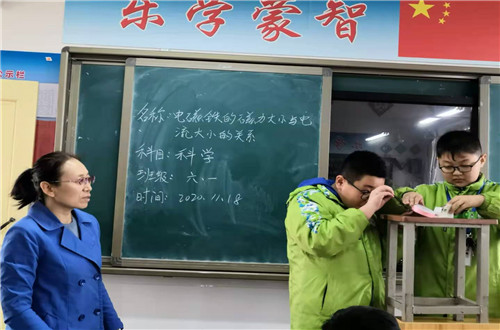 乐学蒙智
公示栏
名称:电磁铁的磁力大小与电
流大小的关系
科目:科学
班级:六.一
时间:2020.11.18